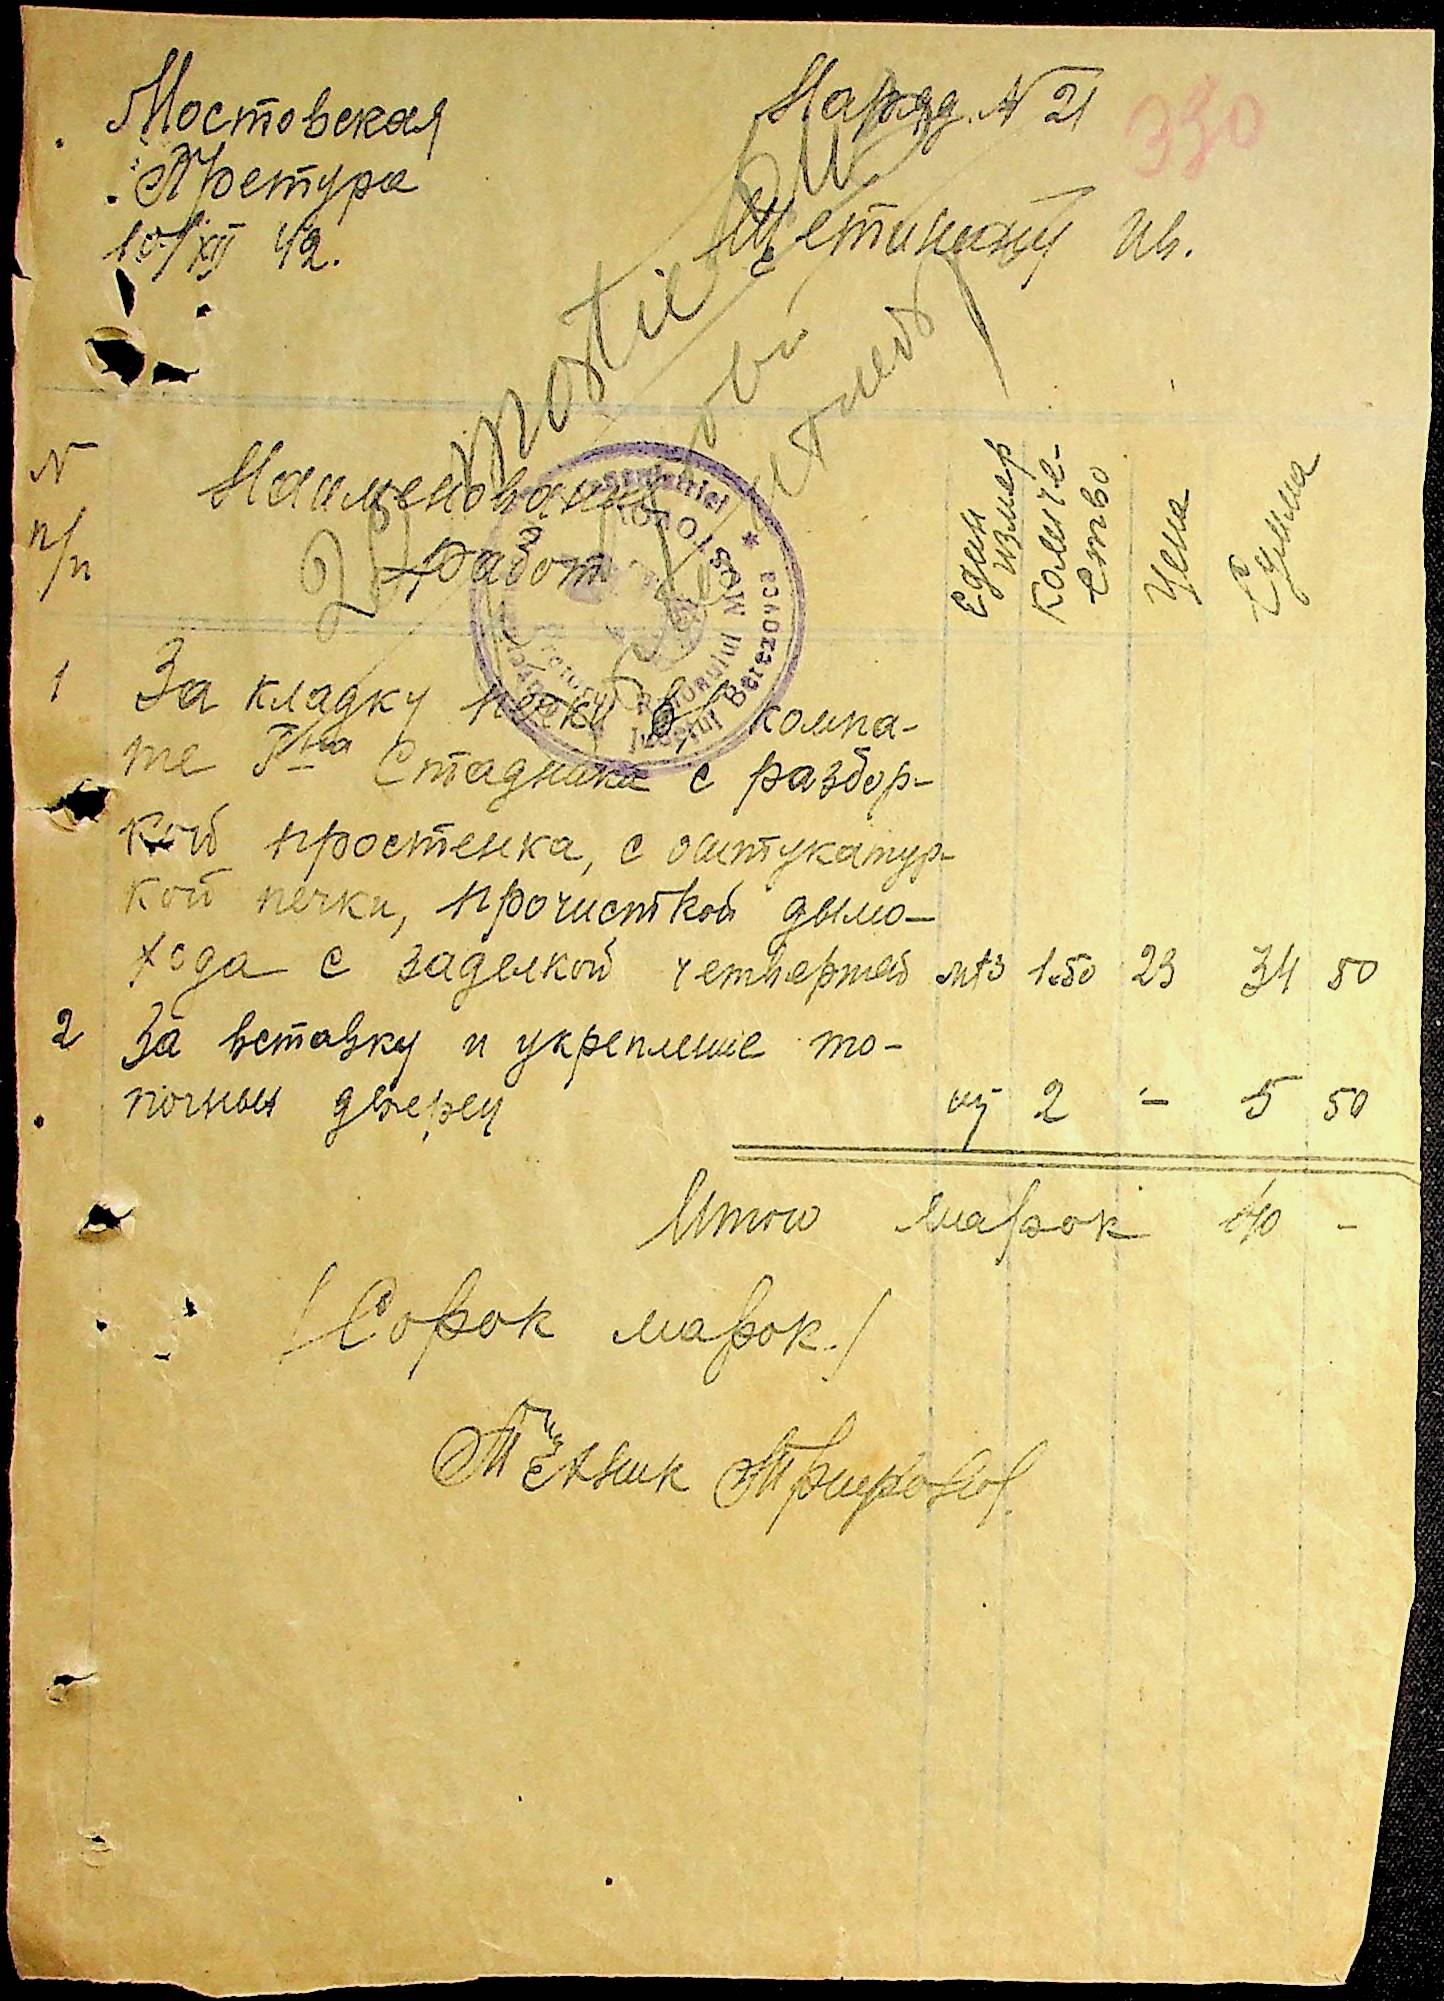 Мостовская
Претура
10/XII 42.
Наряд № 21
330
Щетинину Ив.
№ п/п
Наименования
работ
Един измер
Количе-ство
Цена
Сумма
MOSTOVOI
Judetul Berezovca
1 За кладку печки в комна-
те Стадника с разбор-
кой простенка, с оштукатур-
кой печки, прочисткой дымо-
хода с заделкой четвертей мт3 1.50 23 34 50
2 За вставку и укрепление то-
почных дверец шт 2 - 5 50
Итого марок 40 -
/Сорок марок./
Техник